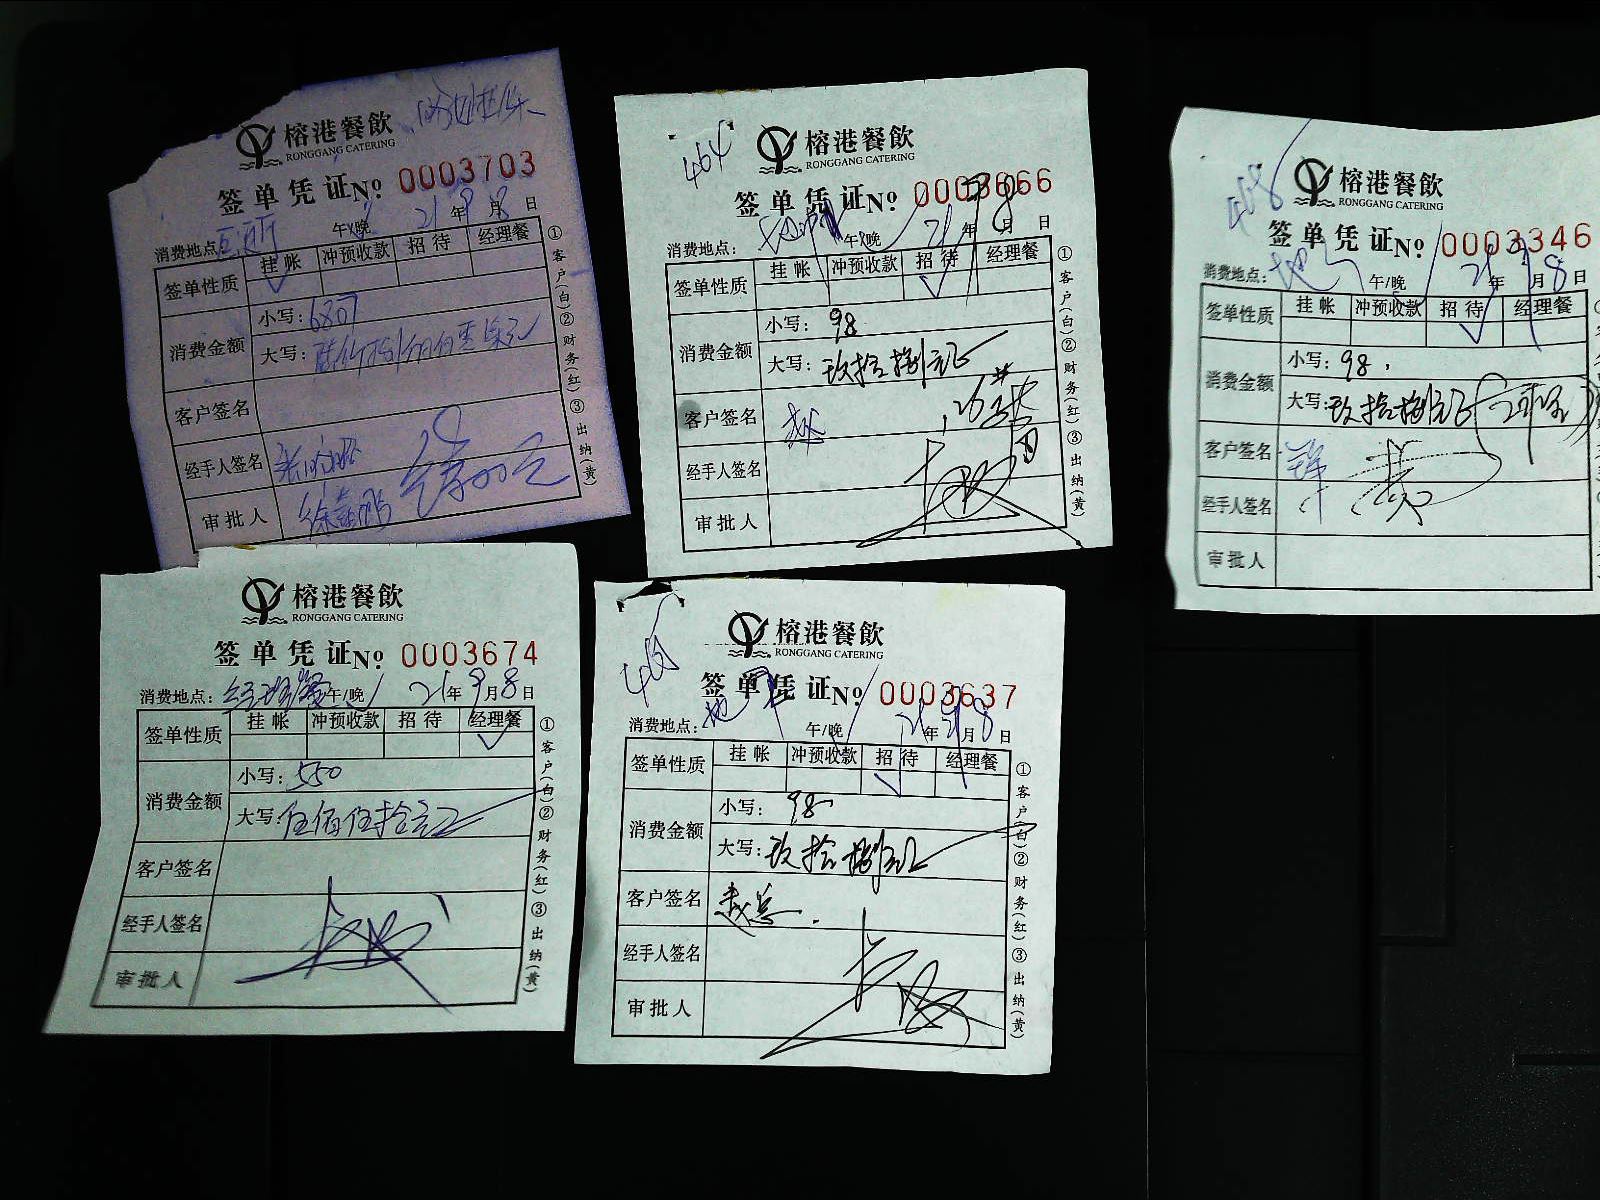 榕港餐飲
RONGGANG CATERING
签单凭证 No 0003703
消费地点: 午/晚 21年9月8日
签单性质 挂帐 冲预收款 招待 经理餐
✓
消费金额 小写: 6807
大写:
客户签名
经手人签名
审批人
①客户(白)②财务(红)③出纳(黄)
464
榕港餐飲
RONGGANG CATERING
签单凭证 No 0003666
消费地点: 午/晚 21年9月8日
签单性质 挂帐 冲预收款 招待 经理餐
✓
消费金额 小写: 98
大写: 玖拾捌元正
客户签名 赵
经手人签名
审批人
①客户(白)②财务(红)③出纳(黄)
468
榕港餐飲
RONGGANG CATERING
签单凭证 No 0003346
消费地点: 午/晚 21年9月8日
签单性质 挂帐 冲预收款 招待 经理餐
✓
消费金额 小写: 98
大写: 玖拾捌元正
客户签名
经手人签名
审批人
榕港餐飲
RONGGANG CATERING
签单凭证 No 0003674
消费地点: 经理餐 午/晚 21年9月8日
签单性质 挂帐 冲预收款 招待 经理餐
✓
消费金额 小写: 550
大写: 伍佰伍拾元正
客户签名
经手人签名
审批人
①客户(白)②财务(红)③出纳(黄)
榕港餐飲
RONGGANG CATERING
签单凭证 No 0003637
消费地点: 午/晚 21年9月8日
签单性质 挂帐 冲预收款 招待 经理餐
✓
消费金额 小写: 98
大写: 玖拾捌元正
客户签名 赵总
经手人签名
审批人
①客户(白)②财务(红)③出纳(黄)